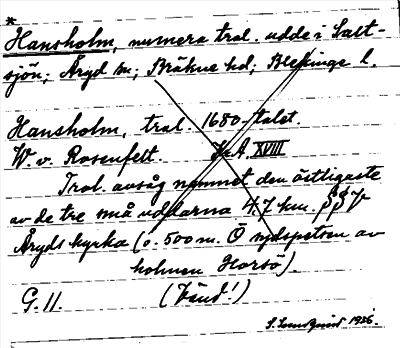 *
Hansholm, numera trol. udde i Salt-
sjön; Åryd sn; Bräkne hd; Blekinge l.
Hansholm, trol. 1680-talet.
W. v. Rosenfelt. Kr.A. XVIII
Trol. avsåg namnet den östligaste
av de tre små uddarna 4.7 km. SSV
Åryds kyrka (o. 500 m. Ö sydspetsen av
holmen Horsö).
G. 11. (Vänd!)
S. 1936.